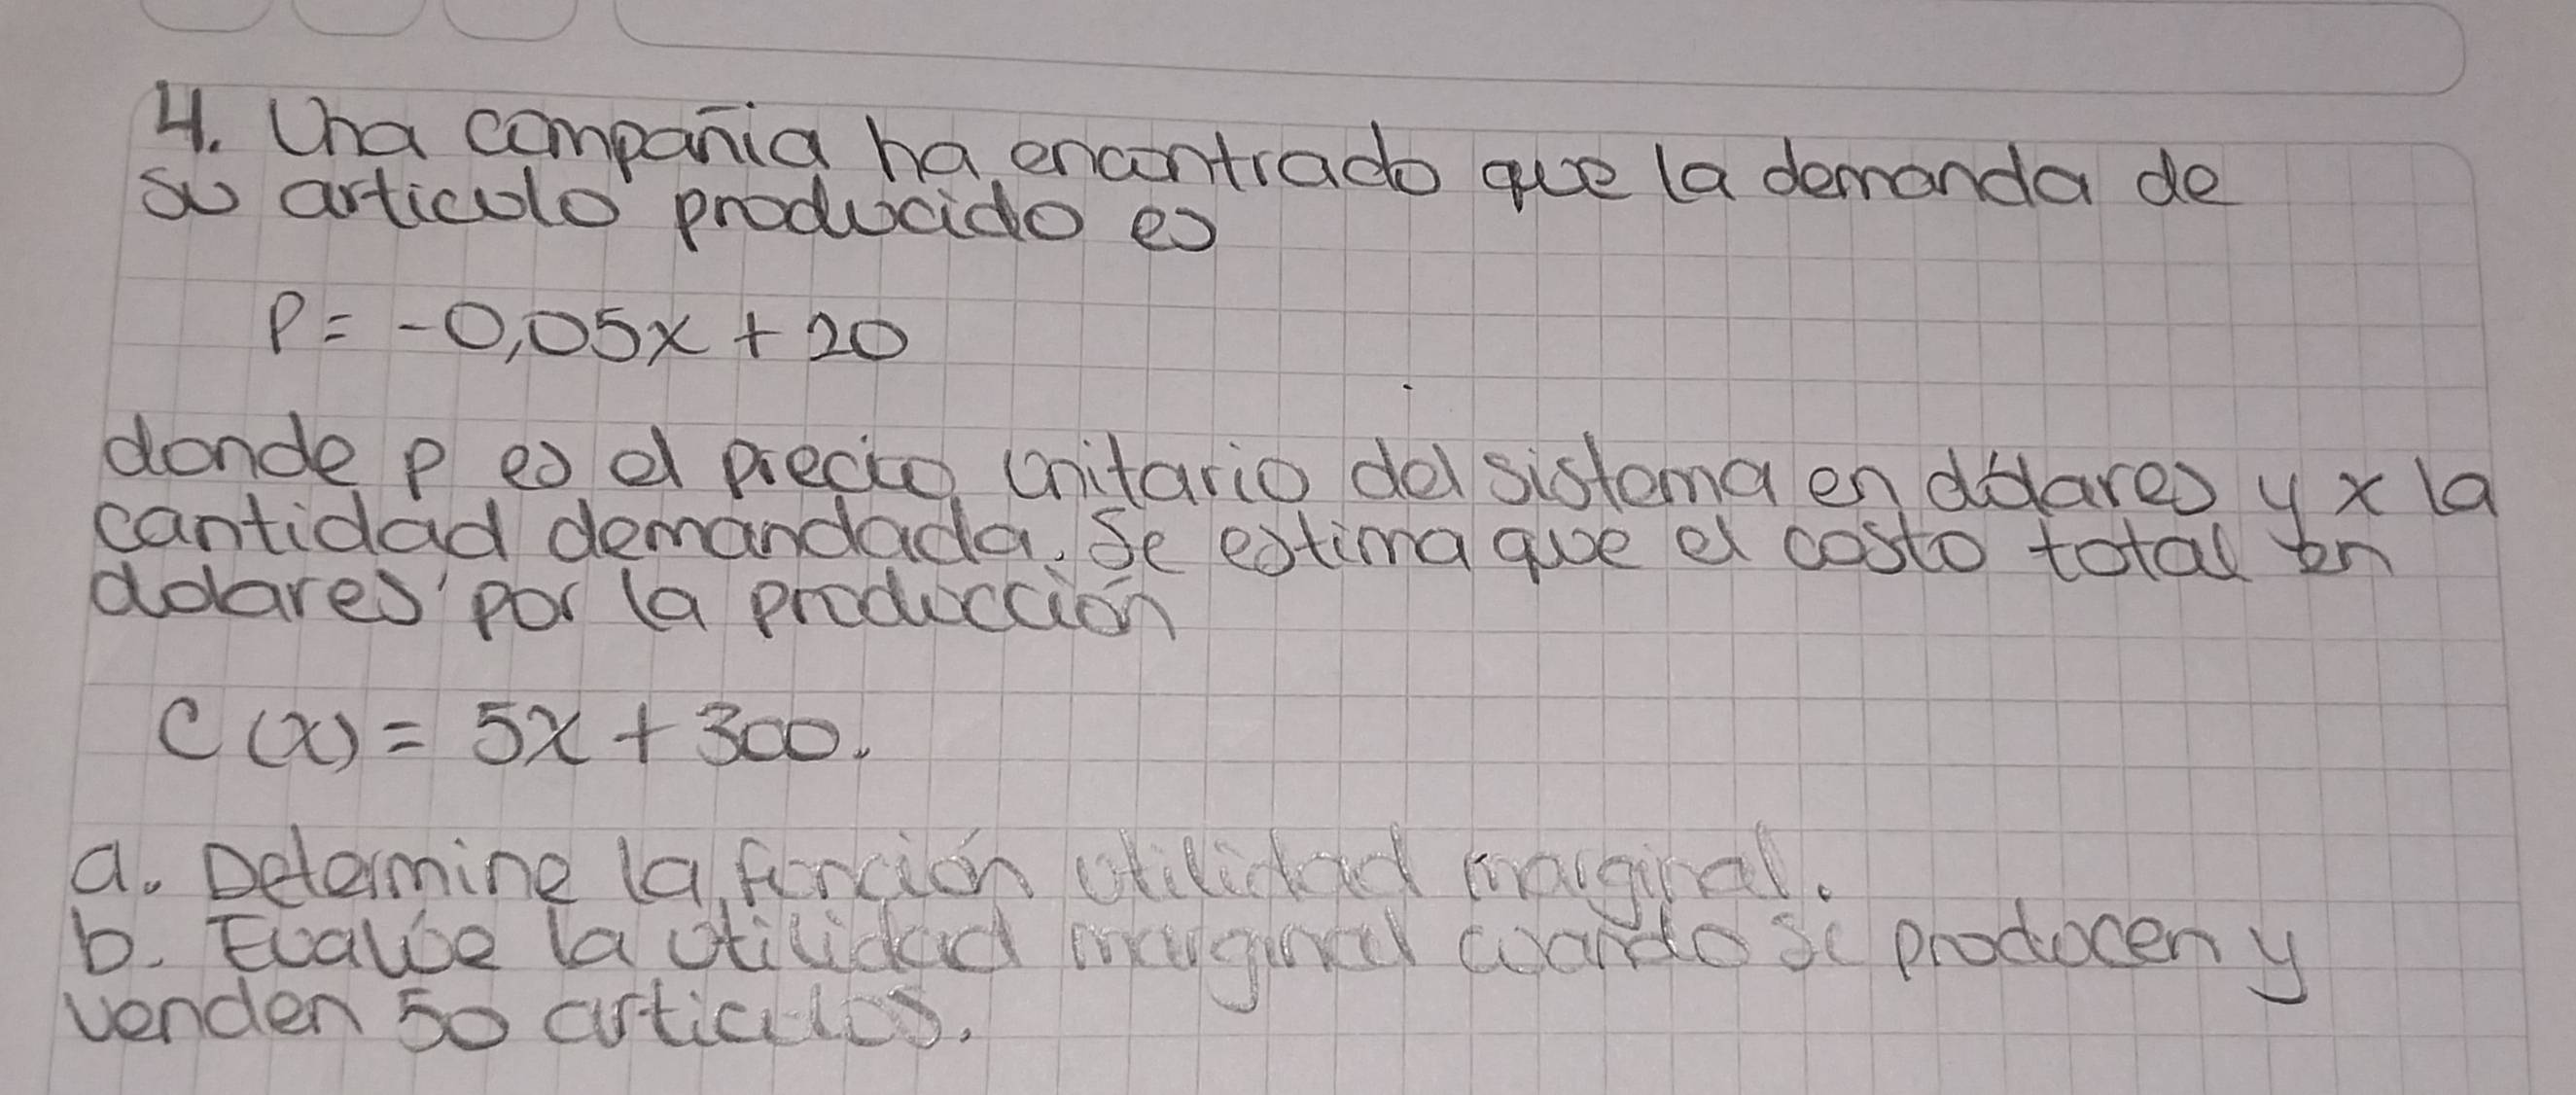 4. Una compañia ha encontrado que la demanda de
su articulo producido es
P= -0,05x + 20
donde p es el precio unitario del sistema en dólares y x la
cantidad demandada. Se estima que el costo total en
dolares por la producción
C (x) = 5x + 300.
a. Determine la función utilidad marginal.
b. Evalúe la utilidad marginal cuando se producen y
venden 50 articulos.